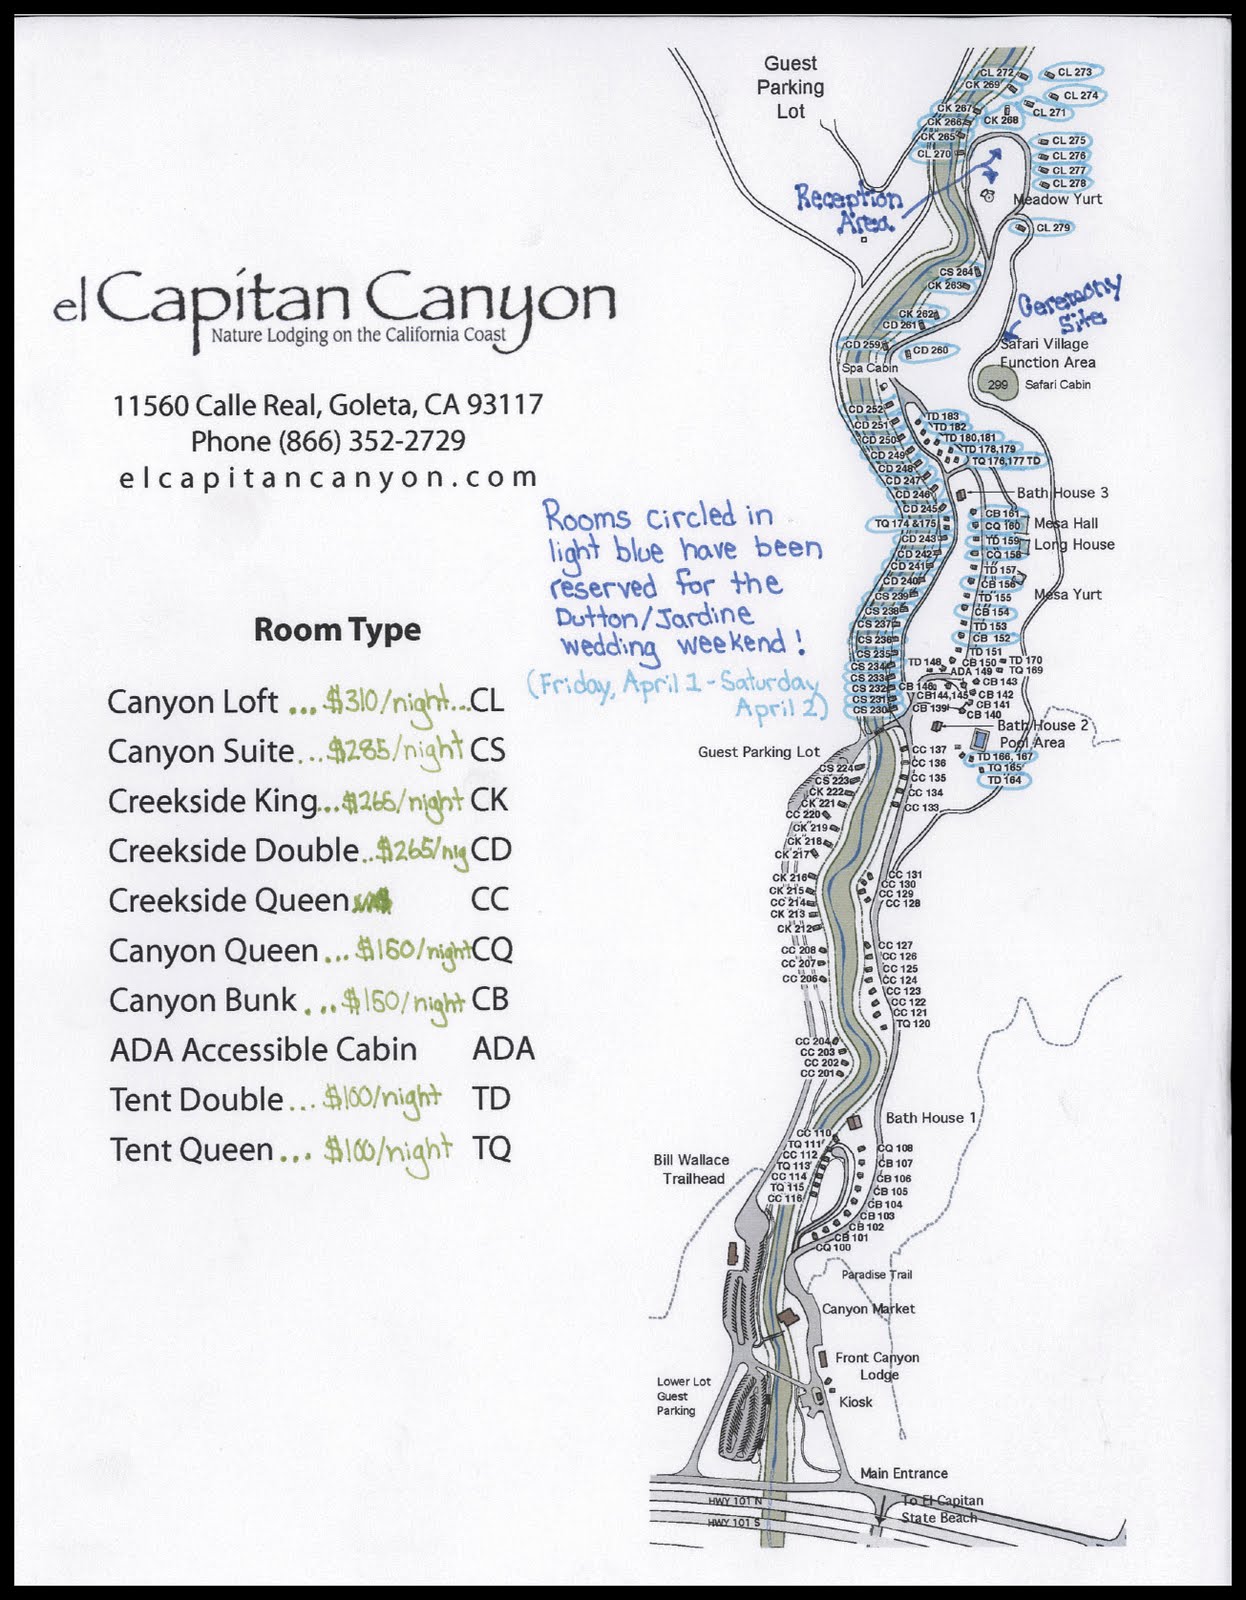 el Capitan Canyon
Nature Lodging on the California Coast
11560 Calle Real, Goleta, CA 93117
Phone (866) 352-2729
elcapitancanyon.com
Rooms circled in
light blue have been
reserved for the
Dutton/Jardine
wedding weekend!
(Friday, April 1 - Saturday
April 2)
Room Type
Canyon Loft ... $310/night... CL
Canyon Suite... $285/night CS
Creekside King... $265/night CK
Creekside Double.. $265/nig CD
Creekside Queen CC
Canyon Queen ... $150/night CQ
Canyon Bunk ... $150/night CB
ADA Accessible Cabin ADA
Tent Double ... $100/night TD
Tent Queen ... $100/night TQ
Guest
Parking
Lot
CL 272
CL 273
CK 269
CL 274
CK 267
CL 271
CK 266
CK 268
CK 265
CL 270
CL 275
CL 276
CL 277
CL 278
Reception
Area
Meadow Yurt
CL 279
CS 264
CK 263
Ceremony
Site
CK 262
CD 261
CD 259
CD 260
Safari Village
Function Area
Spa Cabin
299
Safari Cabin
CD 252
CD 251
CD 250
CD 249
CD 248
CD 247
CD 246
CD 245
TQ 174 &175
CD 243
CD 242
CD 241
CD 240
CS 239
CS 238
CS 237
CS 236
CS 235
CS 234
CS 233
CS 232
CS 231
CS 230
TD 183
TD 182
TD 180,181
TD 178,179
TQ 176,177 TD
Bath House 3
CB 161
CQ 160
Mesa Hall
TD 159
Long House
CQ 158
TD 157
CB 156
Mesa Yurt
TD 155
CB 154
TD 153
CB 152
TD 151
TD 148
CB 150
TD 170
ADA 149
TQ 169
CB 146
CB 143
CB144,145
CB 142
CB 141
CB 139
CB 140
Bath House 2
Pool Area
TD 166, 167
TQ 165
TD 164
Guest Parking Lot
CC 137
CC 136
CC 135
CC 134
CC 133
CS 224
CS 223
CK 222
CK 221
CC 220
CK 219
CK 218
CK 217
CK 216
CK 215
CC 214
CK 213
CK 212
CC 131
CC 130
CC 129
CC 128
CC 208
CC 207
CC 206
CC 127
CC 126
CC 125
CC 124
CC 123
CC 122
CC 121
TQ 120
CC 204
CC 203
CC 202
CC 201
Bath House 1
CC 110
TQ 111
CC 112
TQ 113
CC 114
TQ 115
CC 116
CQ 108
CB 107
CB 106
CB 105
CB 104
CB 103
CB 102
CB 101
CQ 100
Bill Wallace
Trailhead
Paradise Trail
Canyon Market
Front Canyon
Lodge
Kiosk
Lower Lot
Guest
Parking
Main Entrance
HWY 101 N
HWY 101 S
To El Capitan
State Beach